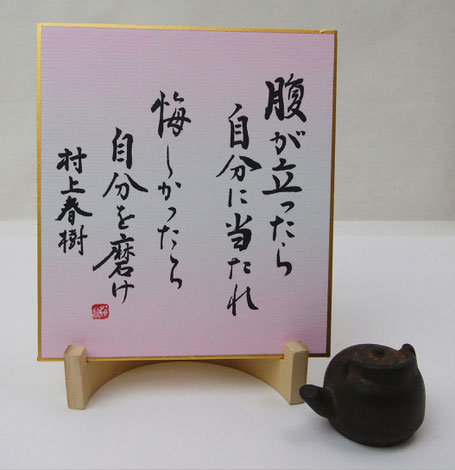 腹が立ったら
自分に当たれ
悔しかったら
自分を磨け
村上春樹